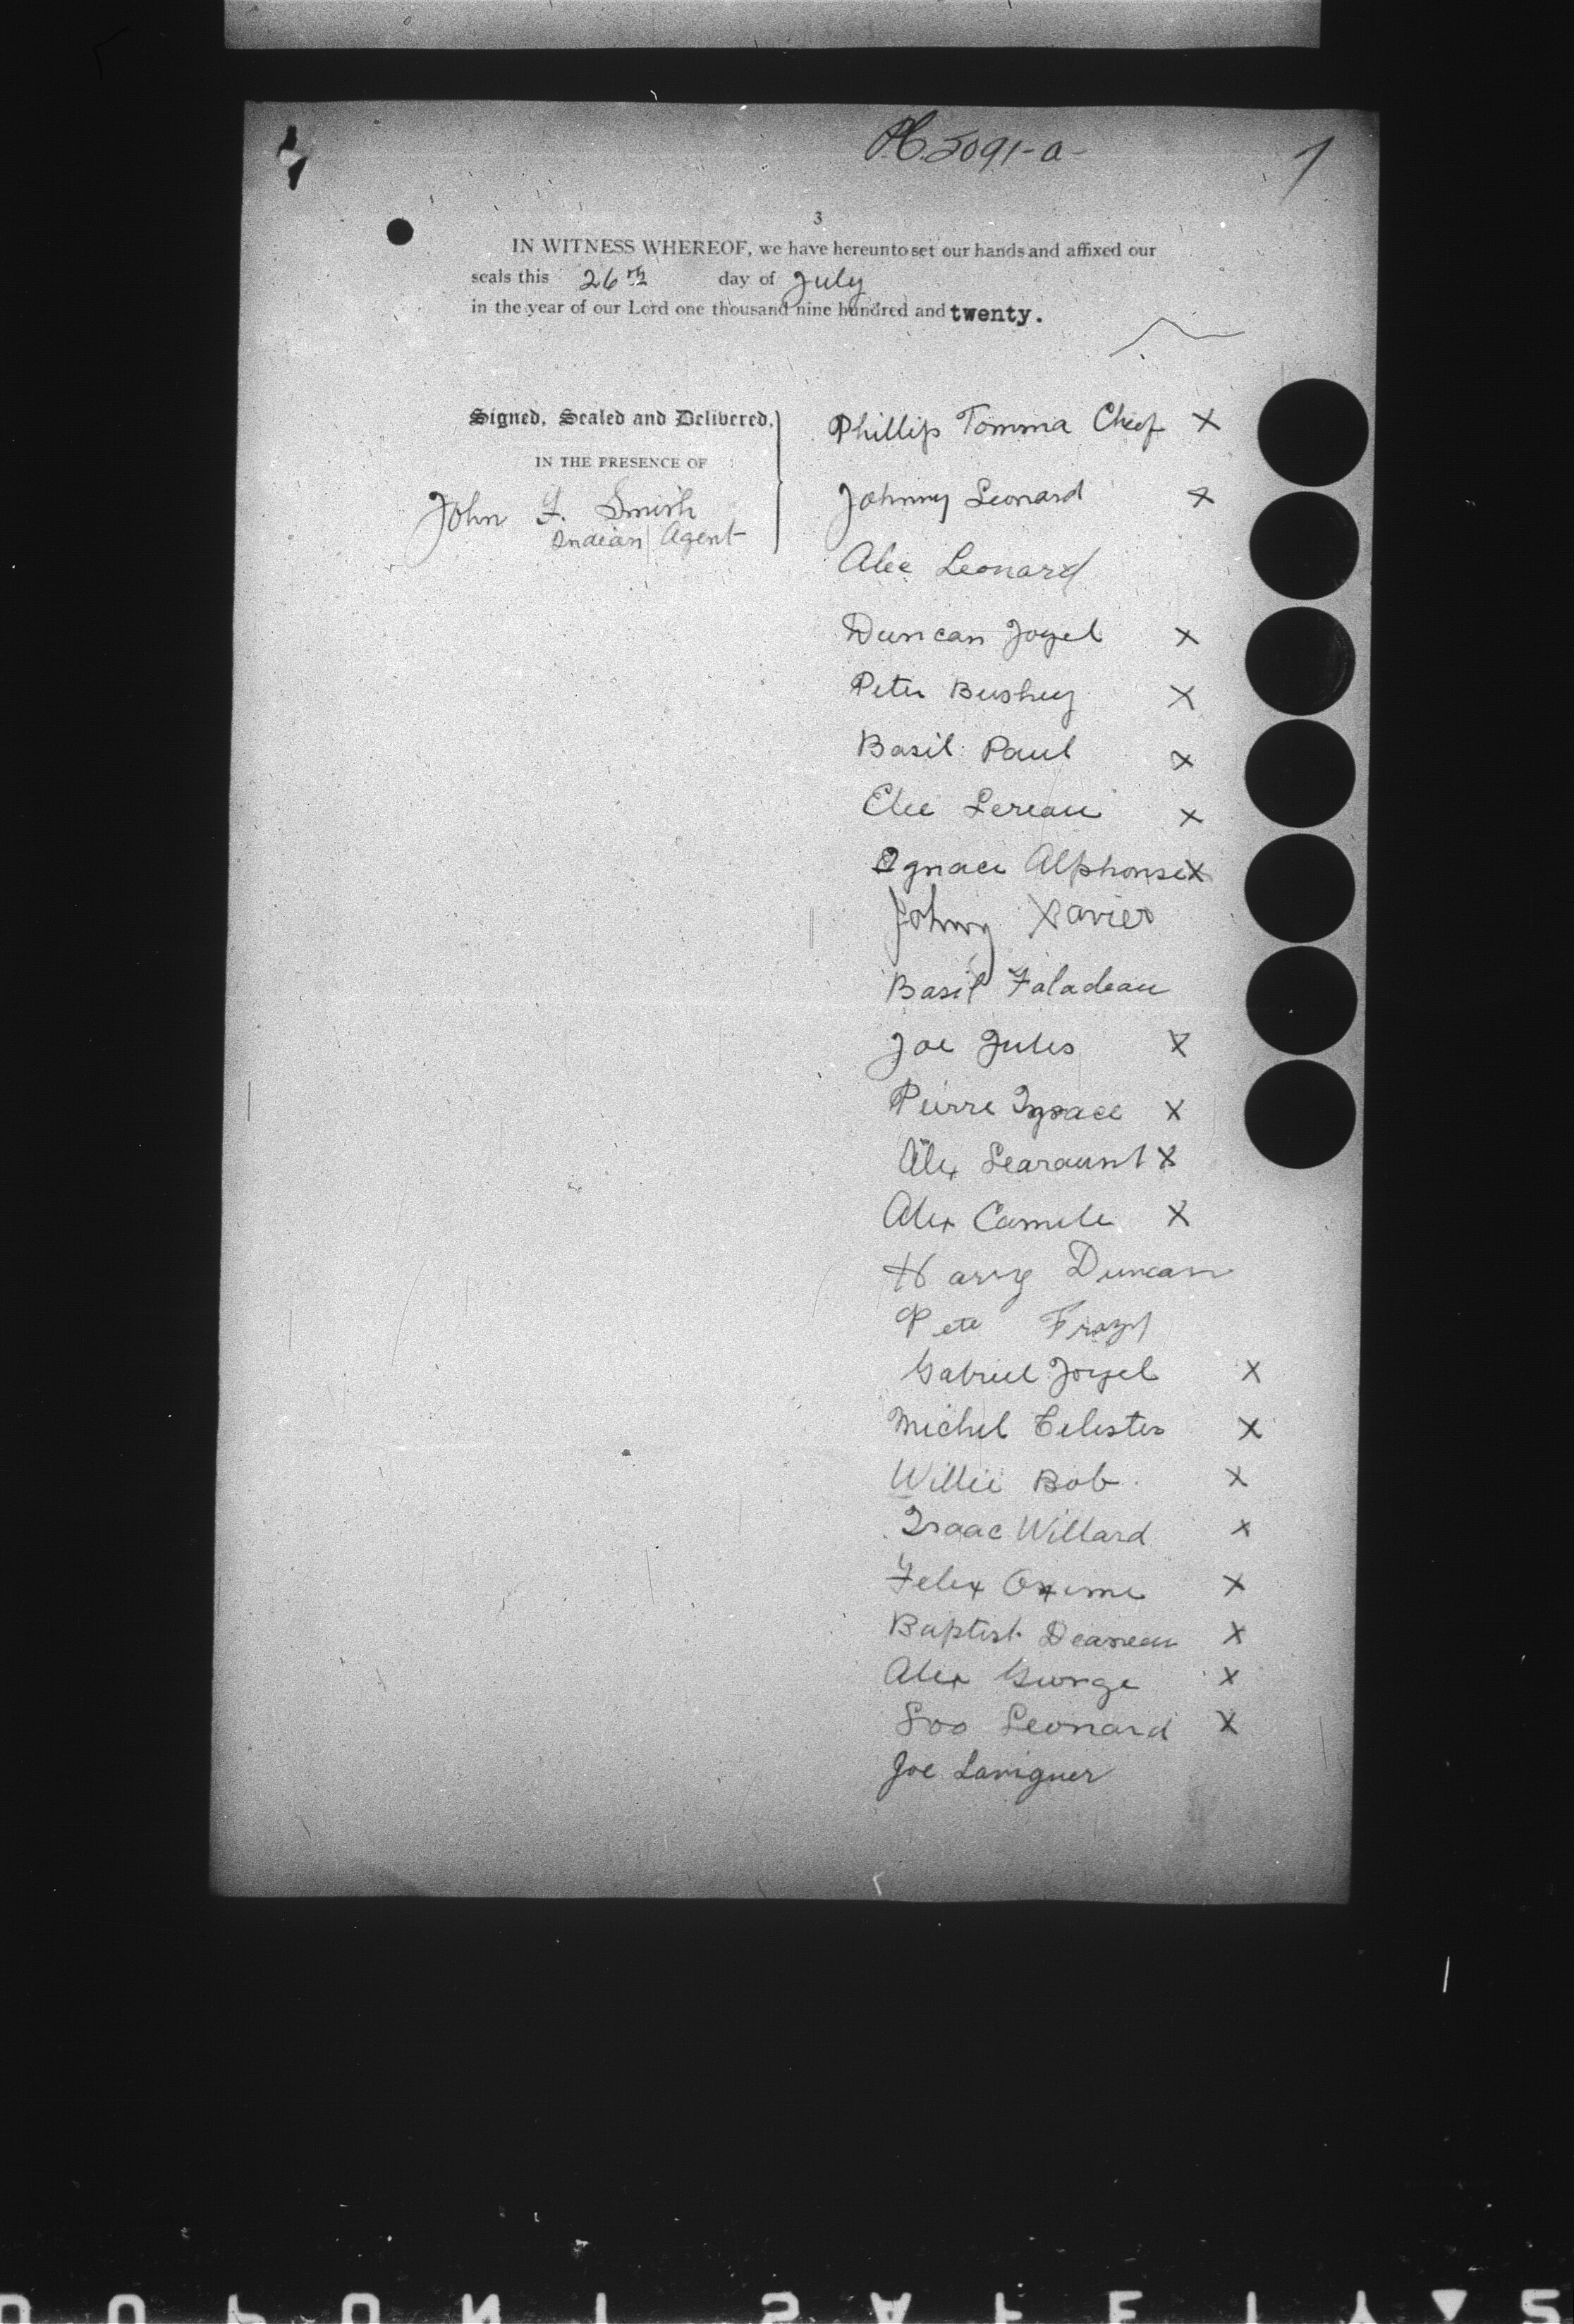 5091-a-
3
IN WITNESS WHEREOF, we have hereunto set our hands and affixed our
seals this 26th day of July
in the year of our Lord one thousand nine hundred and twenty.
Signed, Sealed and Delivered,
IN THE PRESENCE OF
John F. Smith
Indian Agent
Phillip Tomma Chief X
Johnny Leonard X
Alec Leonard
Duncan Joyel X
Peter Bushey X
Basil Paul X
Elie Lereau X
Ignace Alphonse X
Johny Xavier
Basil Faladeau
Joe Jules X
Pierre Ignace X
Alex X
Alex Camile X
Harry Duncan
Pete
Gabriel Joyel X
Michel Celester X
Willie Bob X
Isaac Willard X
Felix X
Baptist X
Alex George X
Soo Leonard X
Joe
DUPONT SAFETY